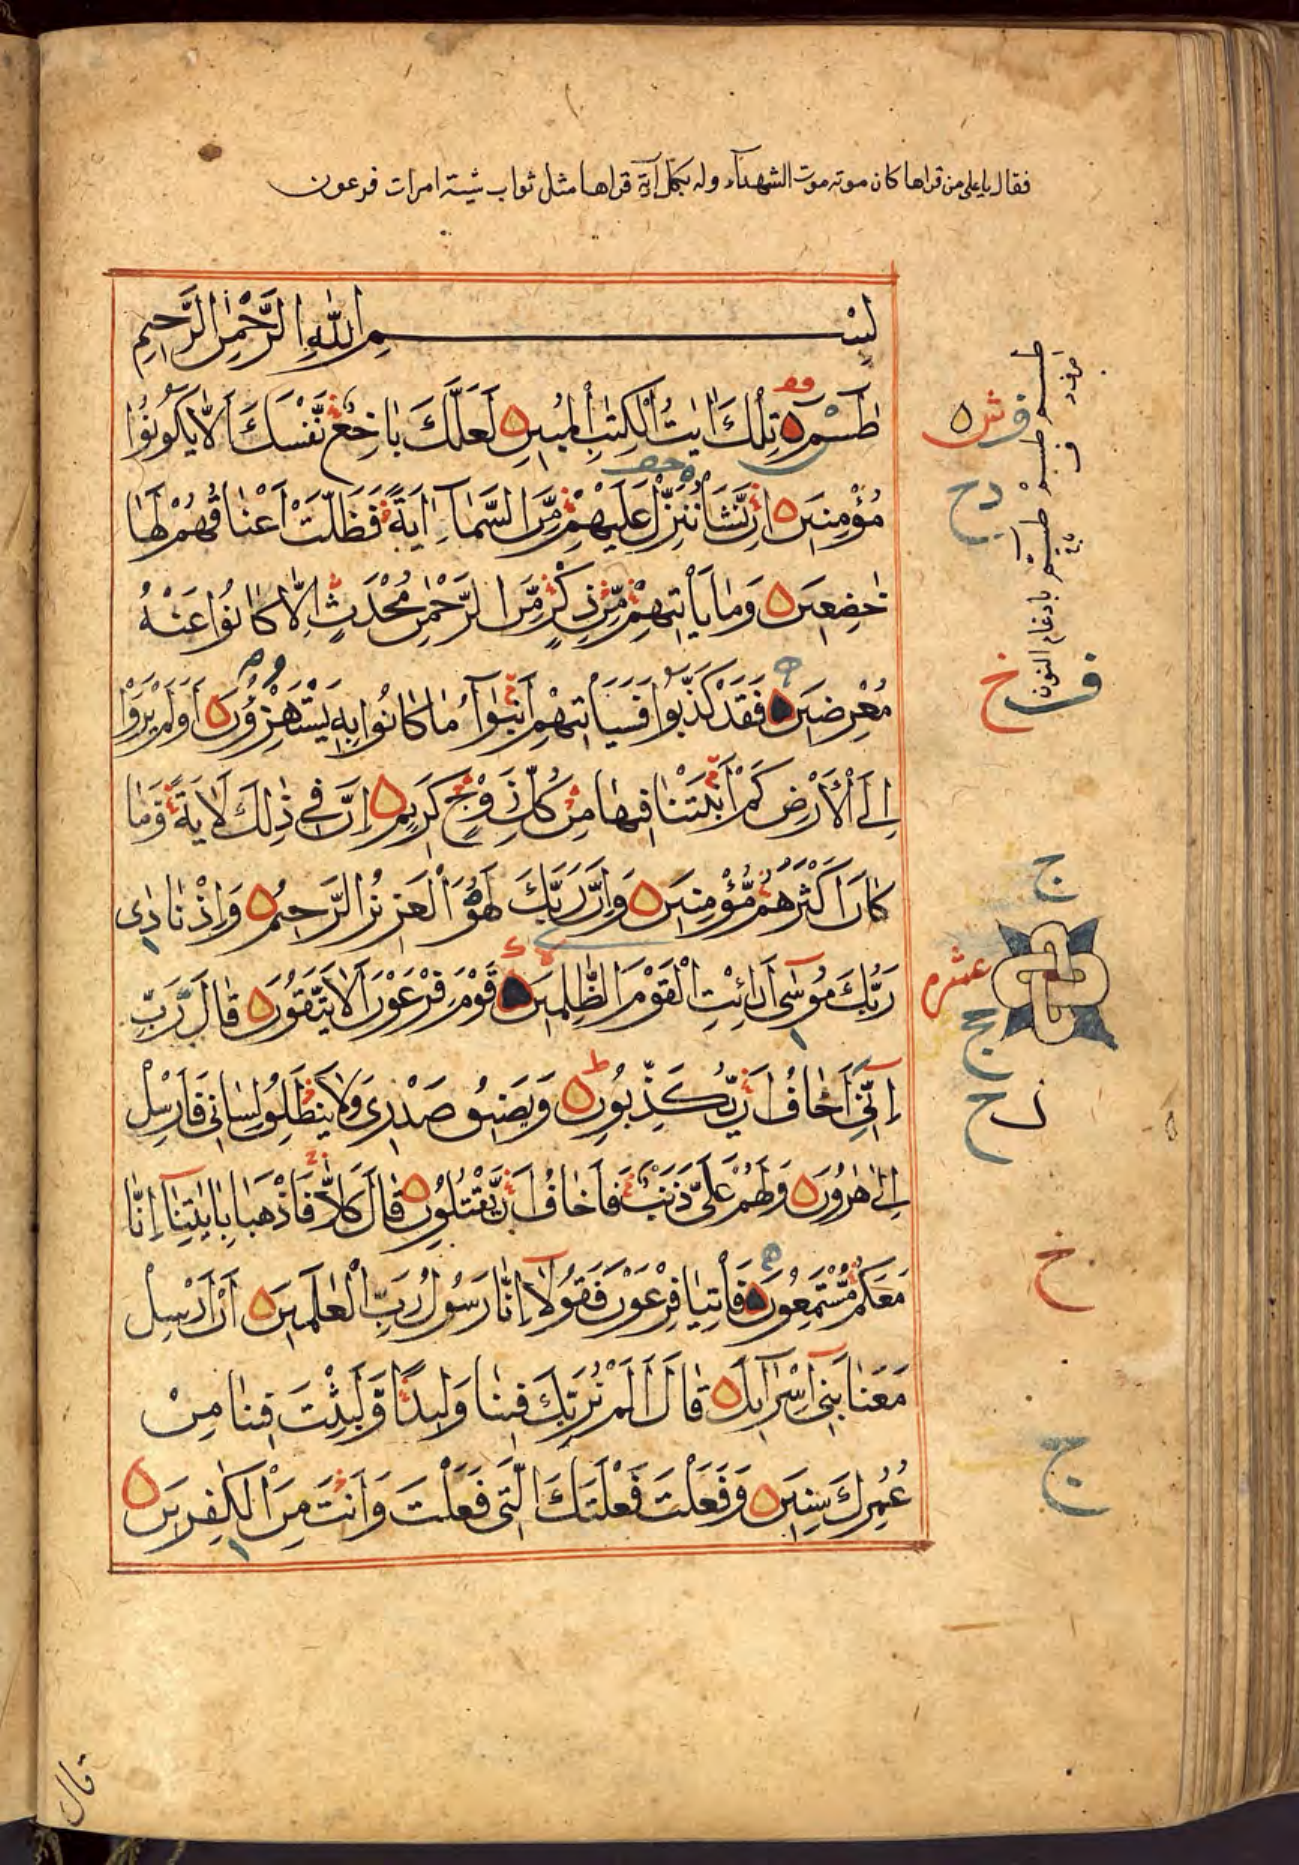 فقال يا علي من قراها كان موته موت الشهدآء وله بكل آية قراها مثل ثواب آسية امرات فرعون
بِسْمِ اللّٰهِ الرَّحْمٰنِ الرَّحِيمِ
طٰسٓمٓ تِلْكَ اٰيٰتُ الْكِتٰبِ الْمُبِينِ لَعَلَّكَ بَاخِعٌ نَّفْسَكَ اَلَّا يَكُونُوا
مُؤْمِنِينَ اِنْ نَّشَأْ نُنَزِّلْ عَلَيْهِمْ مِّنَ السَّمَآءِ اٰيَةً فَظَلَّتْ اَعْنَاقُهُمْ لَهَا
خٰضِعِينَ وَمَا يَأْتِيهِمْ مِّنْ ذِكْرٍ مِّنَ الرَّحْمٰنِ مُحْدَثٍ اِلَّا كَانُوا عَنْهُ
مُعْرِضِينَ فَقَدْ كَذَّبُوا فَسَيَأْتِيهِمْ اَنْبٰٓؤُا مَا كَانُوا بِهِ يَسْتَهْزِؤُنَ اَوَلَمْ يَرَوْا
اِلَى الْاَرْضِ كَمْ اَنْبَتْنَا فِيهَا مِنْ كُلِّ زَوْجٍ كَرِيمٍ اِنَّ فِي ذٰلِكَ لَاٰيَةً وَّمَا
كَانَ اَكْثَرُهُمْ مُّؤْمِنِينَ وَاِنَّ رَبَّكَ لَهُوَ الْعَزِيزُ الرَّحِيمُ وَاِذْ نَادٰى
رَبُّكَ مُوسٰٓى اَنِ ائْتِ الْقَوْمَ الظّٰلِمِينَ قَوْمَ فِرْعَوْنَ اَلَا يَتَّقُونَ قَالَ رَبِّ
اِنِّٓي اَخَافُ اَنْ يُّكَذِّبُونِ وَيَضِيقُ صَدْرِي وَلَا يَنْطَلِقُ لِسَانِي فَاَرْسِلْ
اِلٰى هٰرُونَ وَلَهُمْ عَلَيَّ ذَنْبٌ فَاَخَافُ اَنْ يَّقْتُلُونِ قَالَ كَلَّا فَاذْهَبَا بِاٰيٰتِنَآ اِنَّا
مَعَكُمْ مُّسْتَمِعُونَ فَأْتِيَا فِرْعَوْنَ فَقُولَآ اِنَّا رَسُولُ رَبِّ الْعٰلَمِينَ اَنْ اَرْسِلْ
مَعَنَا بَنِيٓ اِسْرَآءِيلَ قَالَ اَلَمْ نُرَبِّكَ فِينَا وَلِيدًا وَّلَبِثْتَ فِينَا مِنْ
عُمُرِكَ سِنِينَ وَفَعَلْتَ فَعْلَتَكَ الَّتِي فَعَلْتَ وَاَنْتَ مِنَ الْكٰفِرِينَ
عشره
بادغام النون
قال